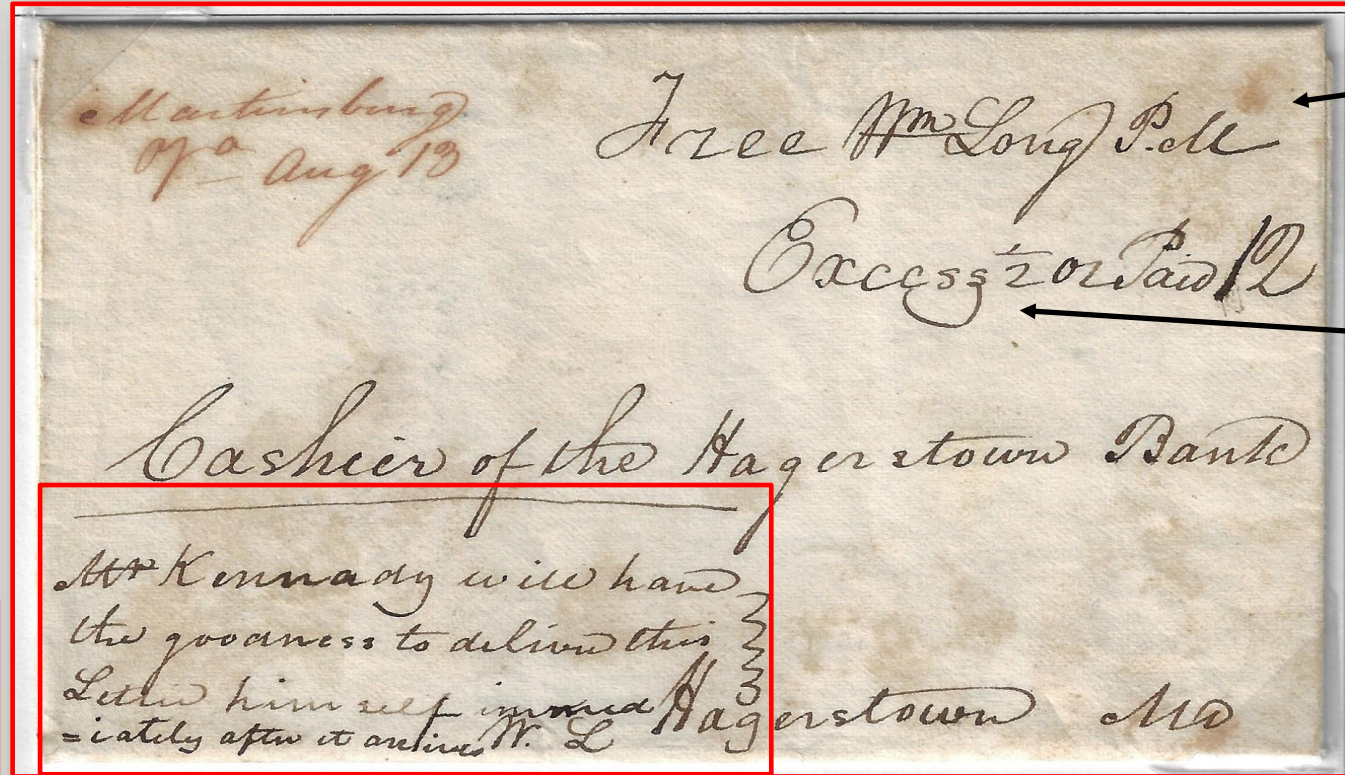 Martinsburg
Va Aug 13
Free Wm Long P.M
Excess ½ oz Paid 12
Cashier of the Hagerstown Bank
Mr Kennady will have
the goodness to deliver this
Letter himself immed
=iately after it arives W. L
Hagerstown Md